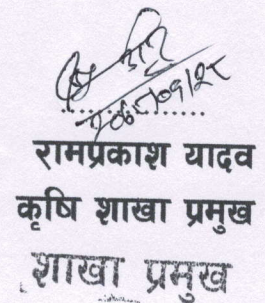 २०८१/०९/२८
रामप्रकाश यादव
कृषि शाखा प्रमुख
शाखा प्रमुख